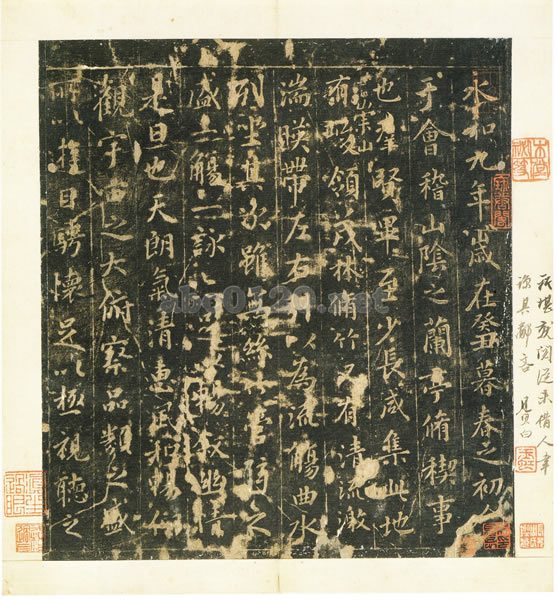 永和九年歲在癸丑暮春之初
于會稽山陰之蘭亭脩稧事
也羣賢畢至少長咸集此地
有崇山峻領茂林脩竹又有清流激
湍暎帶左右引以為流觴曲水
列坐其次雖無絲竹管弦之
盛一觴一詠暢敘幽情
是日也天朗氣清惠風和暢仰
觀宇宙之大俯察品類之盛
所以遊目騁懷足以極視聽之